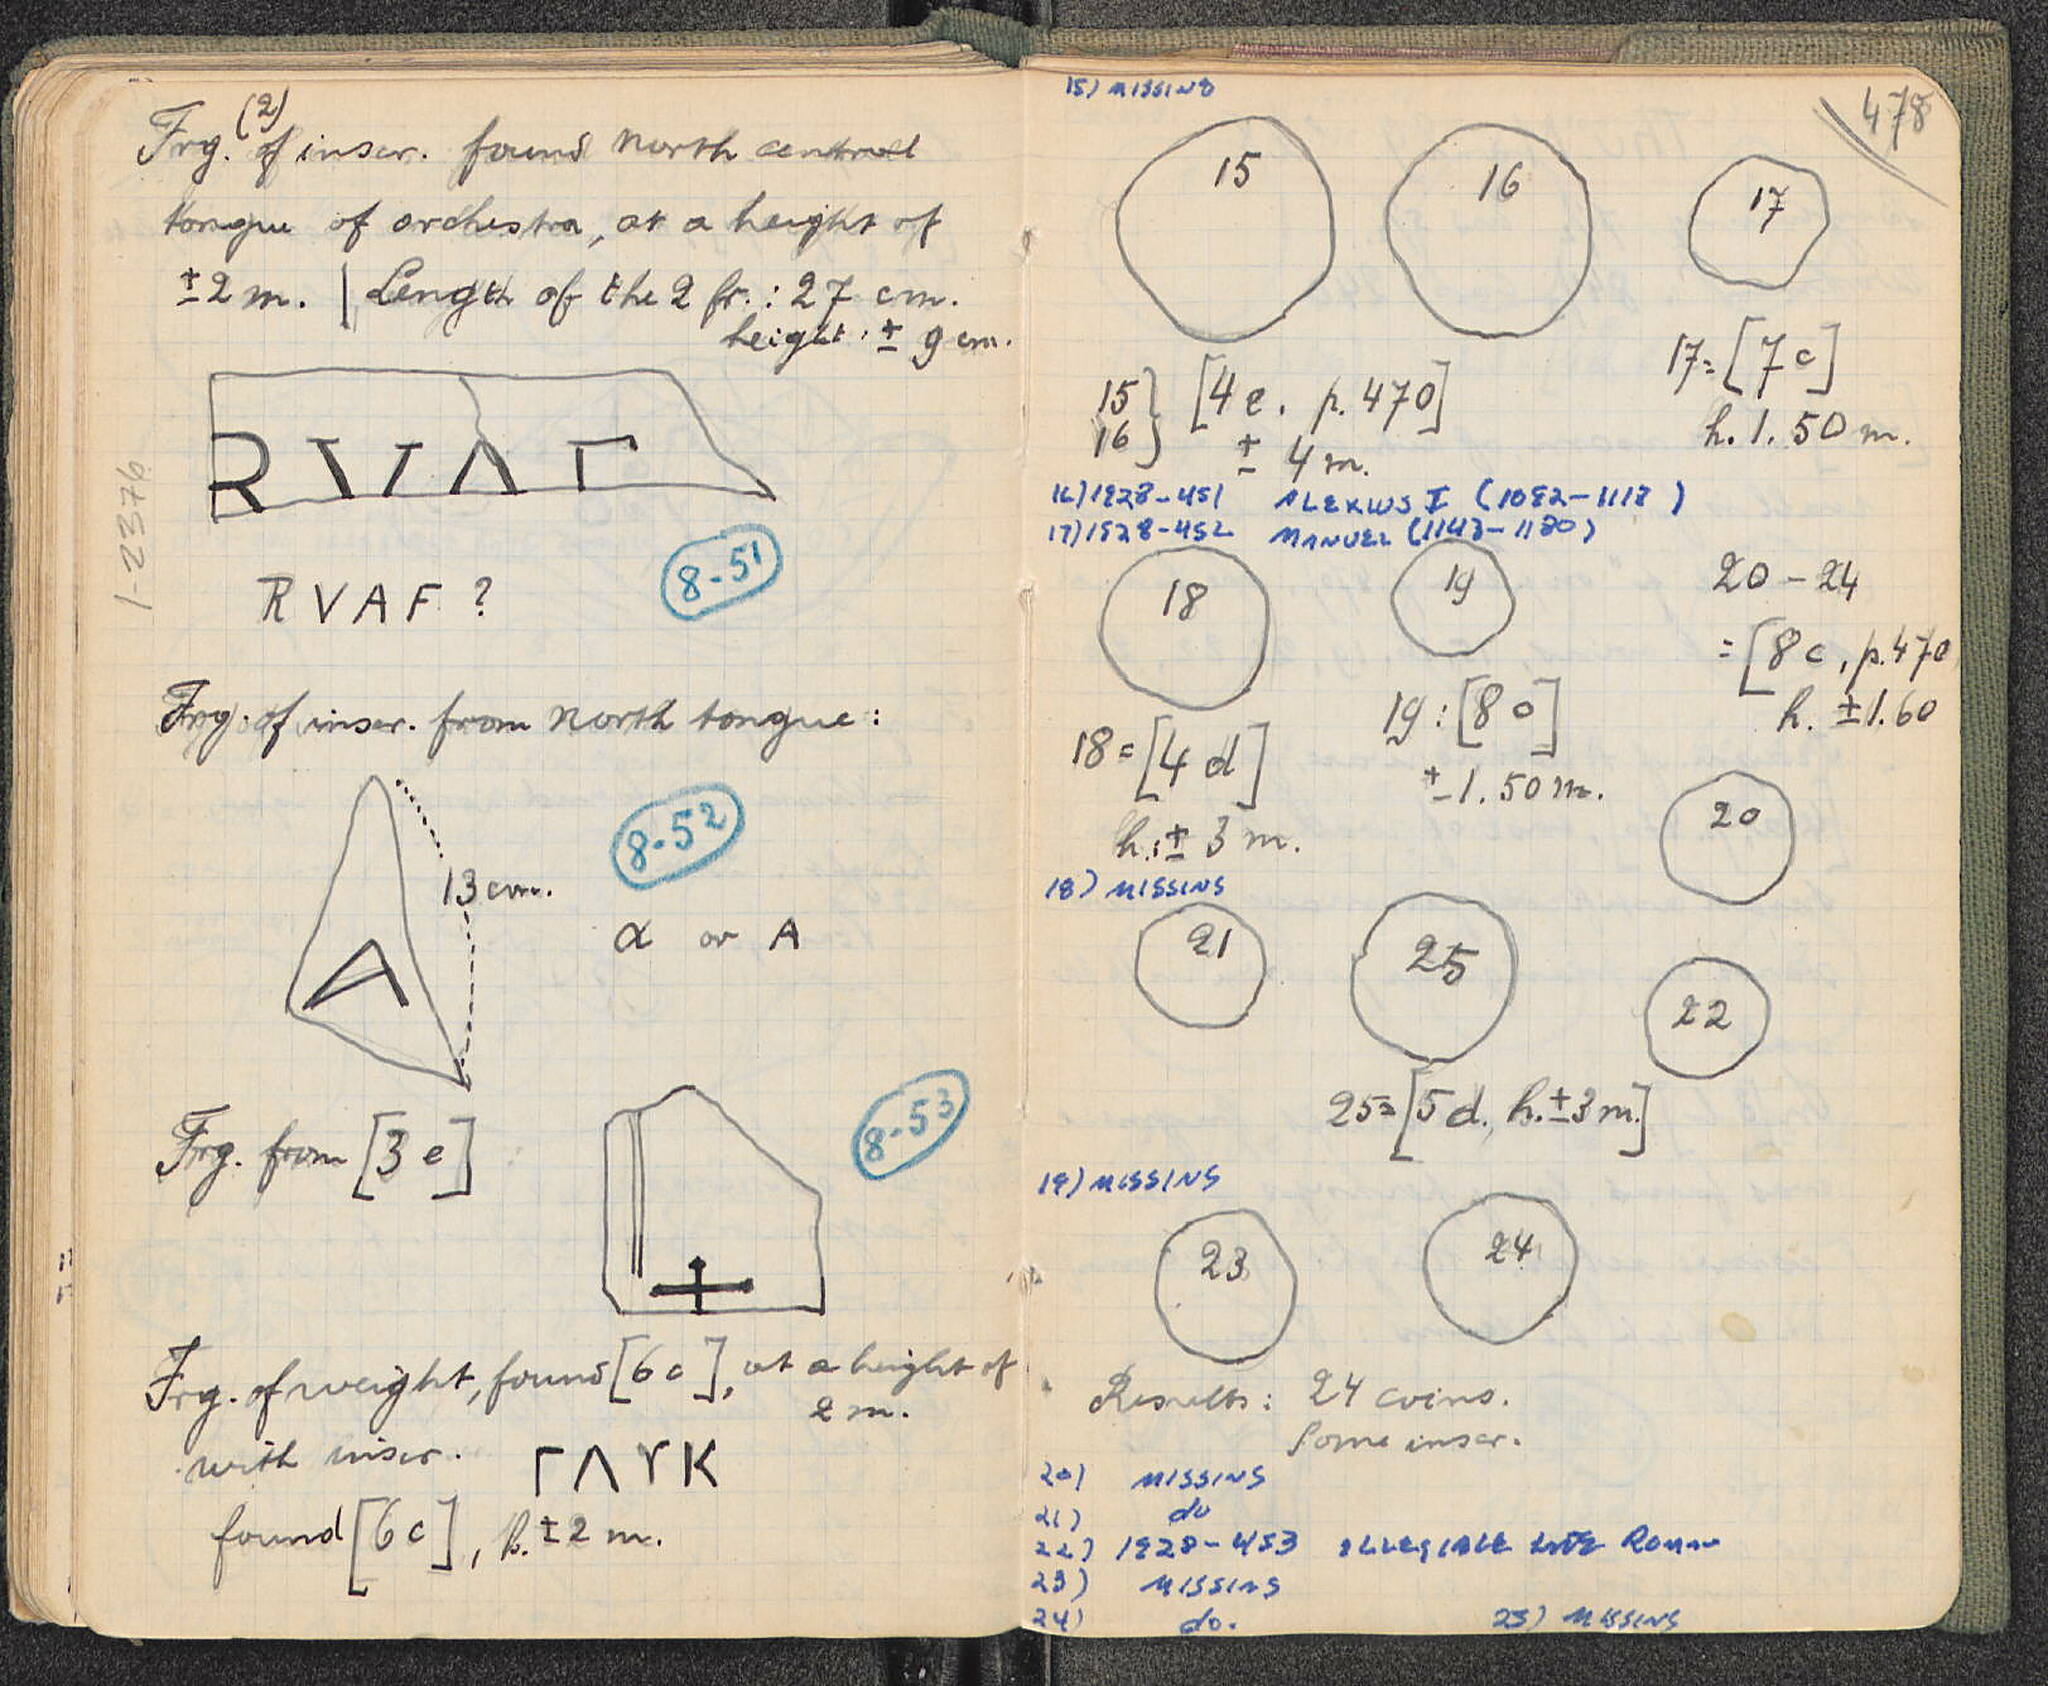 (2)
Frg. of inscr. found north central
tongue of orchestra, at a height of
±2 m. | Length of the 2 fr.: 27 cm.
height: ± 9 cm.
RVAF
1-2376
R V A F ?
8-51
Frg. of inscr. from north tongue:
8-52
13 cm.
α or A
A
Frg. from [3 e]
8-53
Frg. of weight, found [6 c], at a height of
2 m.
with inscr. ΓΛΥΚ
found [6 c], h. ±2 m.
478
15) MISSING
15 16 17
17= [7 c]
h. 1.50 m.
15
16} [4 e. p. 470]
± 4 m.
16) 1928-451 ALEXIUS I (1082-1118)
17) 1928-452 MANUEL (1143-1180)
18 19 20 - 24
= [8 c, p. 470
h. ±1.60
19: [8 c]
± 1.50 m.
18 = [4 d]
h.: ± 3 m.
20
18) MISSING
21 25 22
25= [5 d. h. ±3 m.]
19) MISSING
23 24
Results: 24 coins.
Some inscr.
20) MISSING
21) do
22) 1928-453 ILLEGIBLE LATE ROMAN
23) MISSING
24) do. 25) MISSING